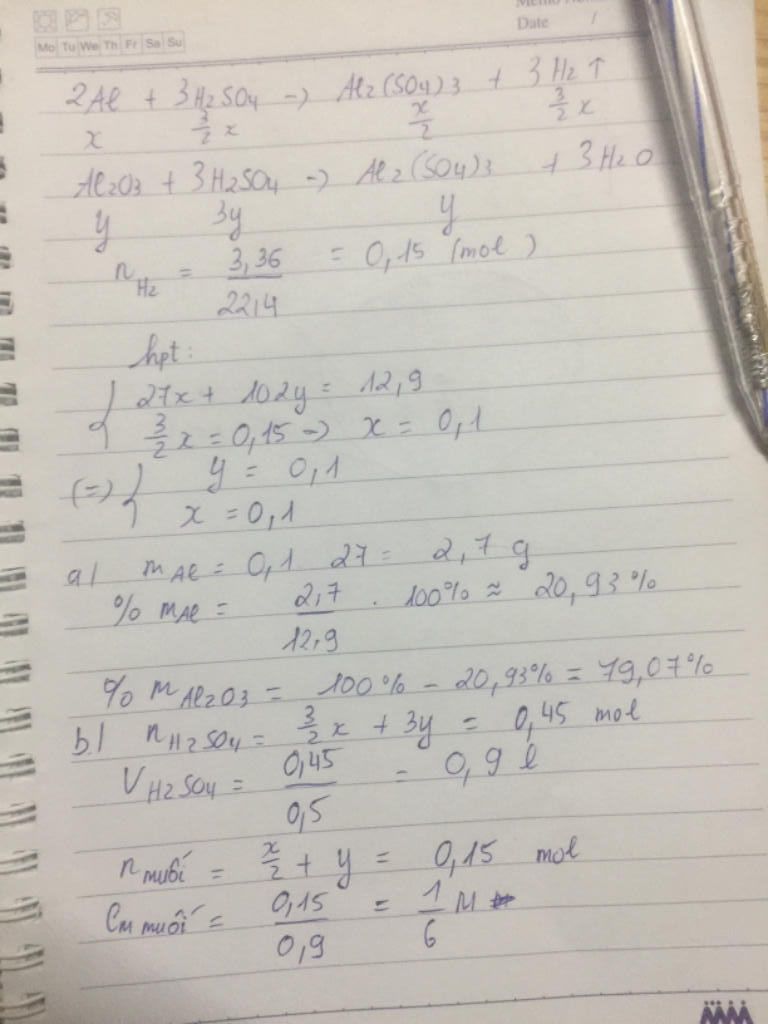 Date /
Mo Tu We Th Fr Sa Su
2Al + 3H2SO4 → Al2(SO4)3 + 3H2 ↑
x 3/2 x x/2 3/2 x
Al2O3 + 3H2SO4 → Al2(SO4)3 + 3H2O
y 3y y
nH2 = 3,36/22,4 = 0,15 (mol)
hpt:
{ 27x + 102y = 12,9
3/2 x = 0,15 → x = 0,1
(=) { y = 0,1
x = 0,1
a/ mAl = 0,1 27 = 2,7 g
% mAl = 2,7/12,9 . 100% ≈ 20,93%
% mAl2O3 = 100% - 20,93% = 79,07%
b/ nH2SO4 = 3/2 x + 3y = 0,45 mol
VH2SO4 = 0,45/0,5 = 0,9 l
nmuối = x/2 + y = 0,15 mol
CM muối = 0,15/0,9 = 1/6 M